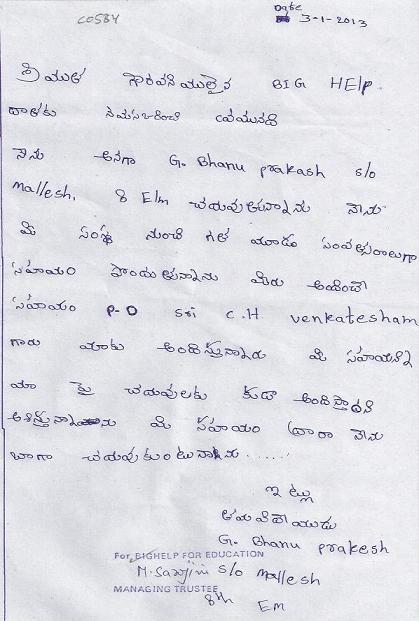 C0584
Date
3-1-2013
శ్రీయుత గౌరవనీయులైన BIG HElp
దాతకు నమస్కరించి వ్రాయునది
నేను అనగా G. Bhanu prakash s/o
Mallesh, 8 E/m చదువుతున్నాను నేను
మీ సంస్థ నుంచి గత మూడు సంవత్సరాలుగా
సహాయం పొందుతున్నాను మీరు అందించే
సహాయం P.O sri C.H venkatesham
గారు మాకు అందిస్తున్నారు మీ సహాయాన్ని
మా పై చదువులకు కుడా అందిస్తారని
ఆశిస్తున్నాను మీ సహాయం ద్వారా నేను
బాగా చదువుకుంటున్నాను......
ఇట్లు
తమ విధేయుడు
G. Bhanu prakesh
For, BIGHELP FOR EDUCATION
M. Sarojini s/o Mallesh
MANAGING TRUSTEE
8th Em